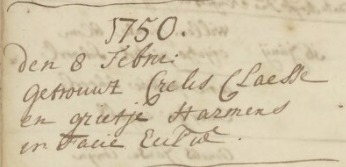 1750.
den 8 Febru:
getrouwt Crelis Claesse
en grietje Harmens
in Facie Eccl: